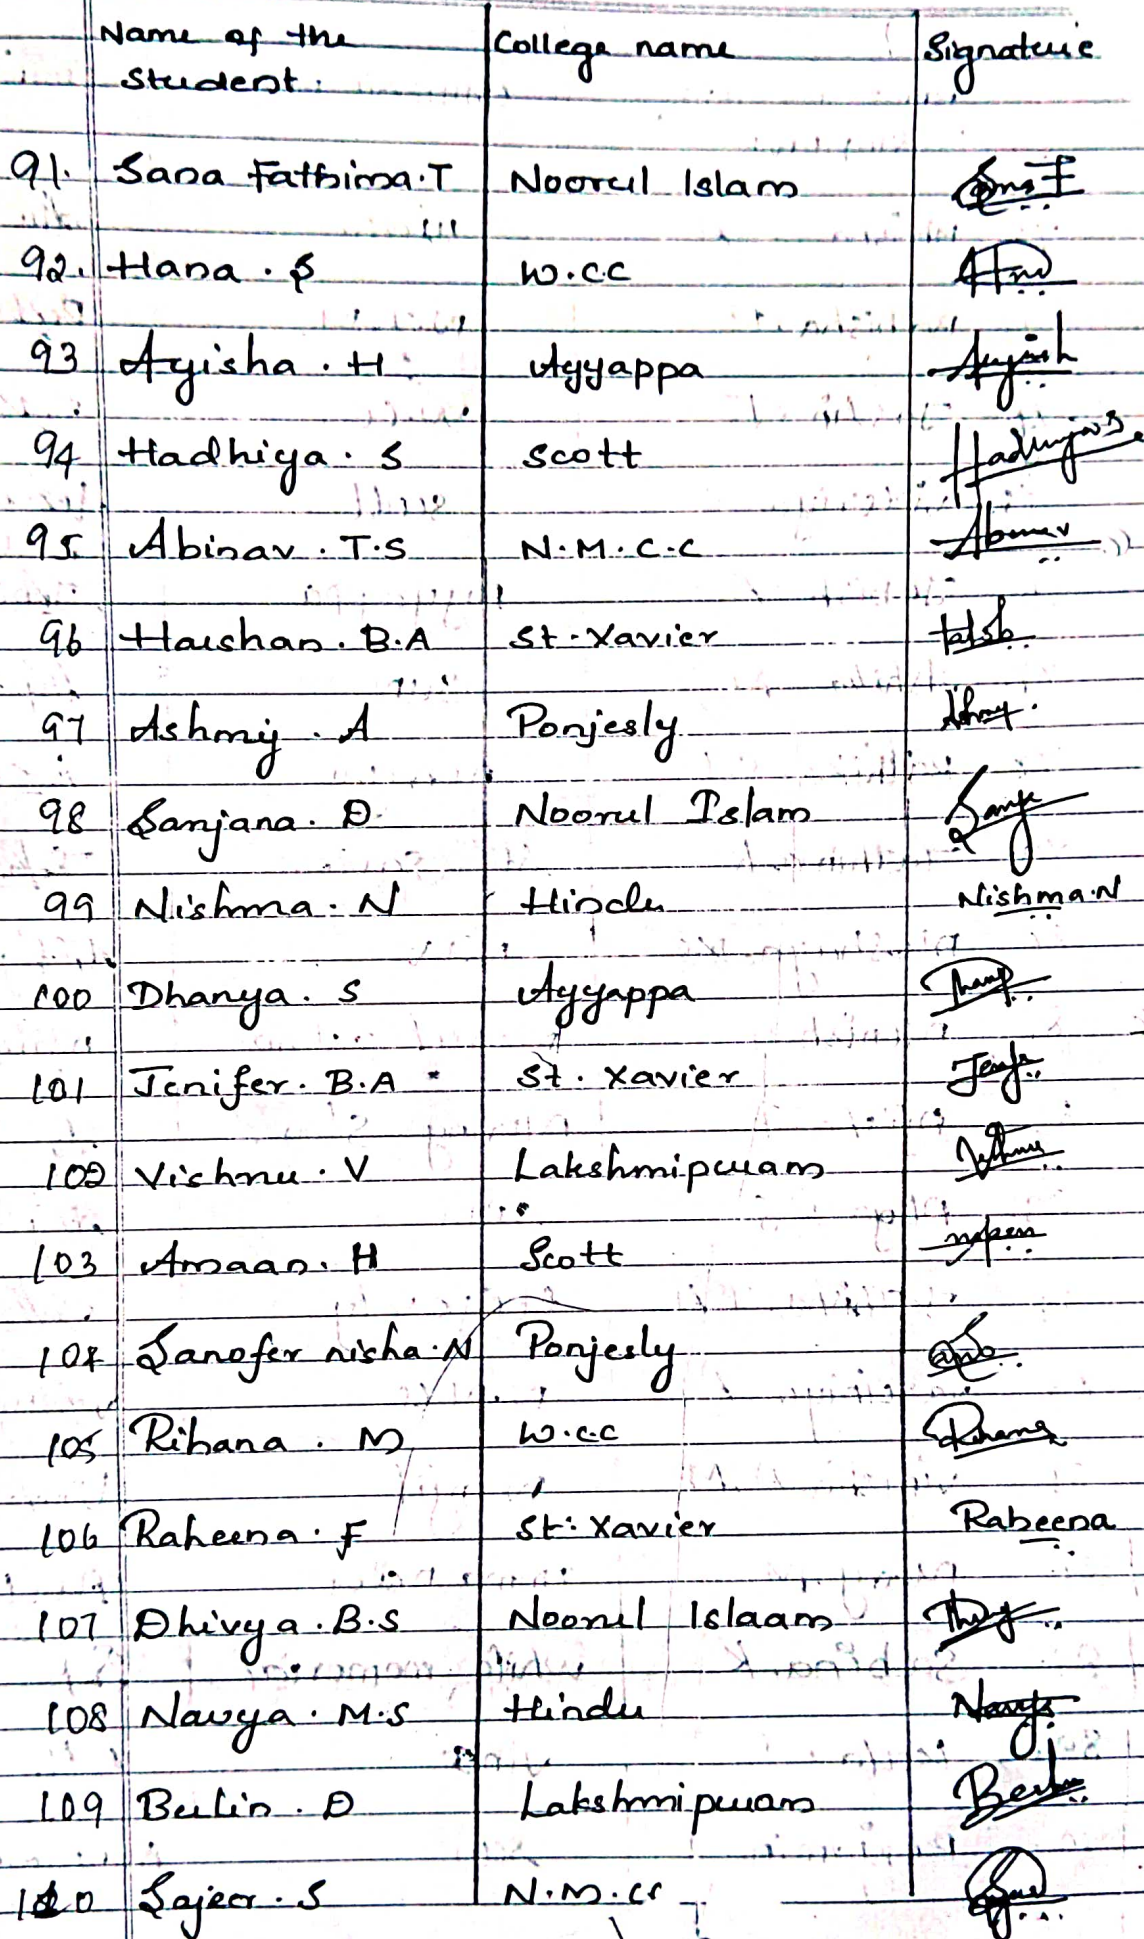 Name of the College name Signature
Student.
91. Sana Fathima.T Noorul Islam
92. Hana . S W.C.C
93 Ayisha . H Ayyappa Ayish
94 Hadhiya . S Scott Hadhiya S
95 Abinav . T.S N.M.C.C Abinav
96 Harshan . B.A St. Xavier
97 Ashmy . A Ponjesly
98 Sanjana . D. Noorul Islam
99 Nishma . N Hindu Nishma.N
100 Dhanya . S Ayyappa
101 Jenifer . B.A St. Xavier
102 Vishnu . V Lakshmipuram
103 Amaan . H Scott
104 Sanofer nisha . N Ponjesly
105 Rihana . M W.C.C Rihana
106 Raheena . F St. Xavier Raheena
107 Dhivya . B.S Noorul Islaam
108 Navya . M.S Hindu Navya
109 Berlin . D Lakshmipuram
110 Sajeer . S N.M.CC